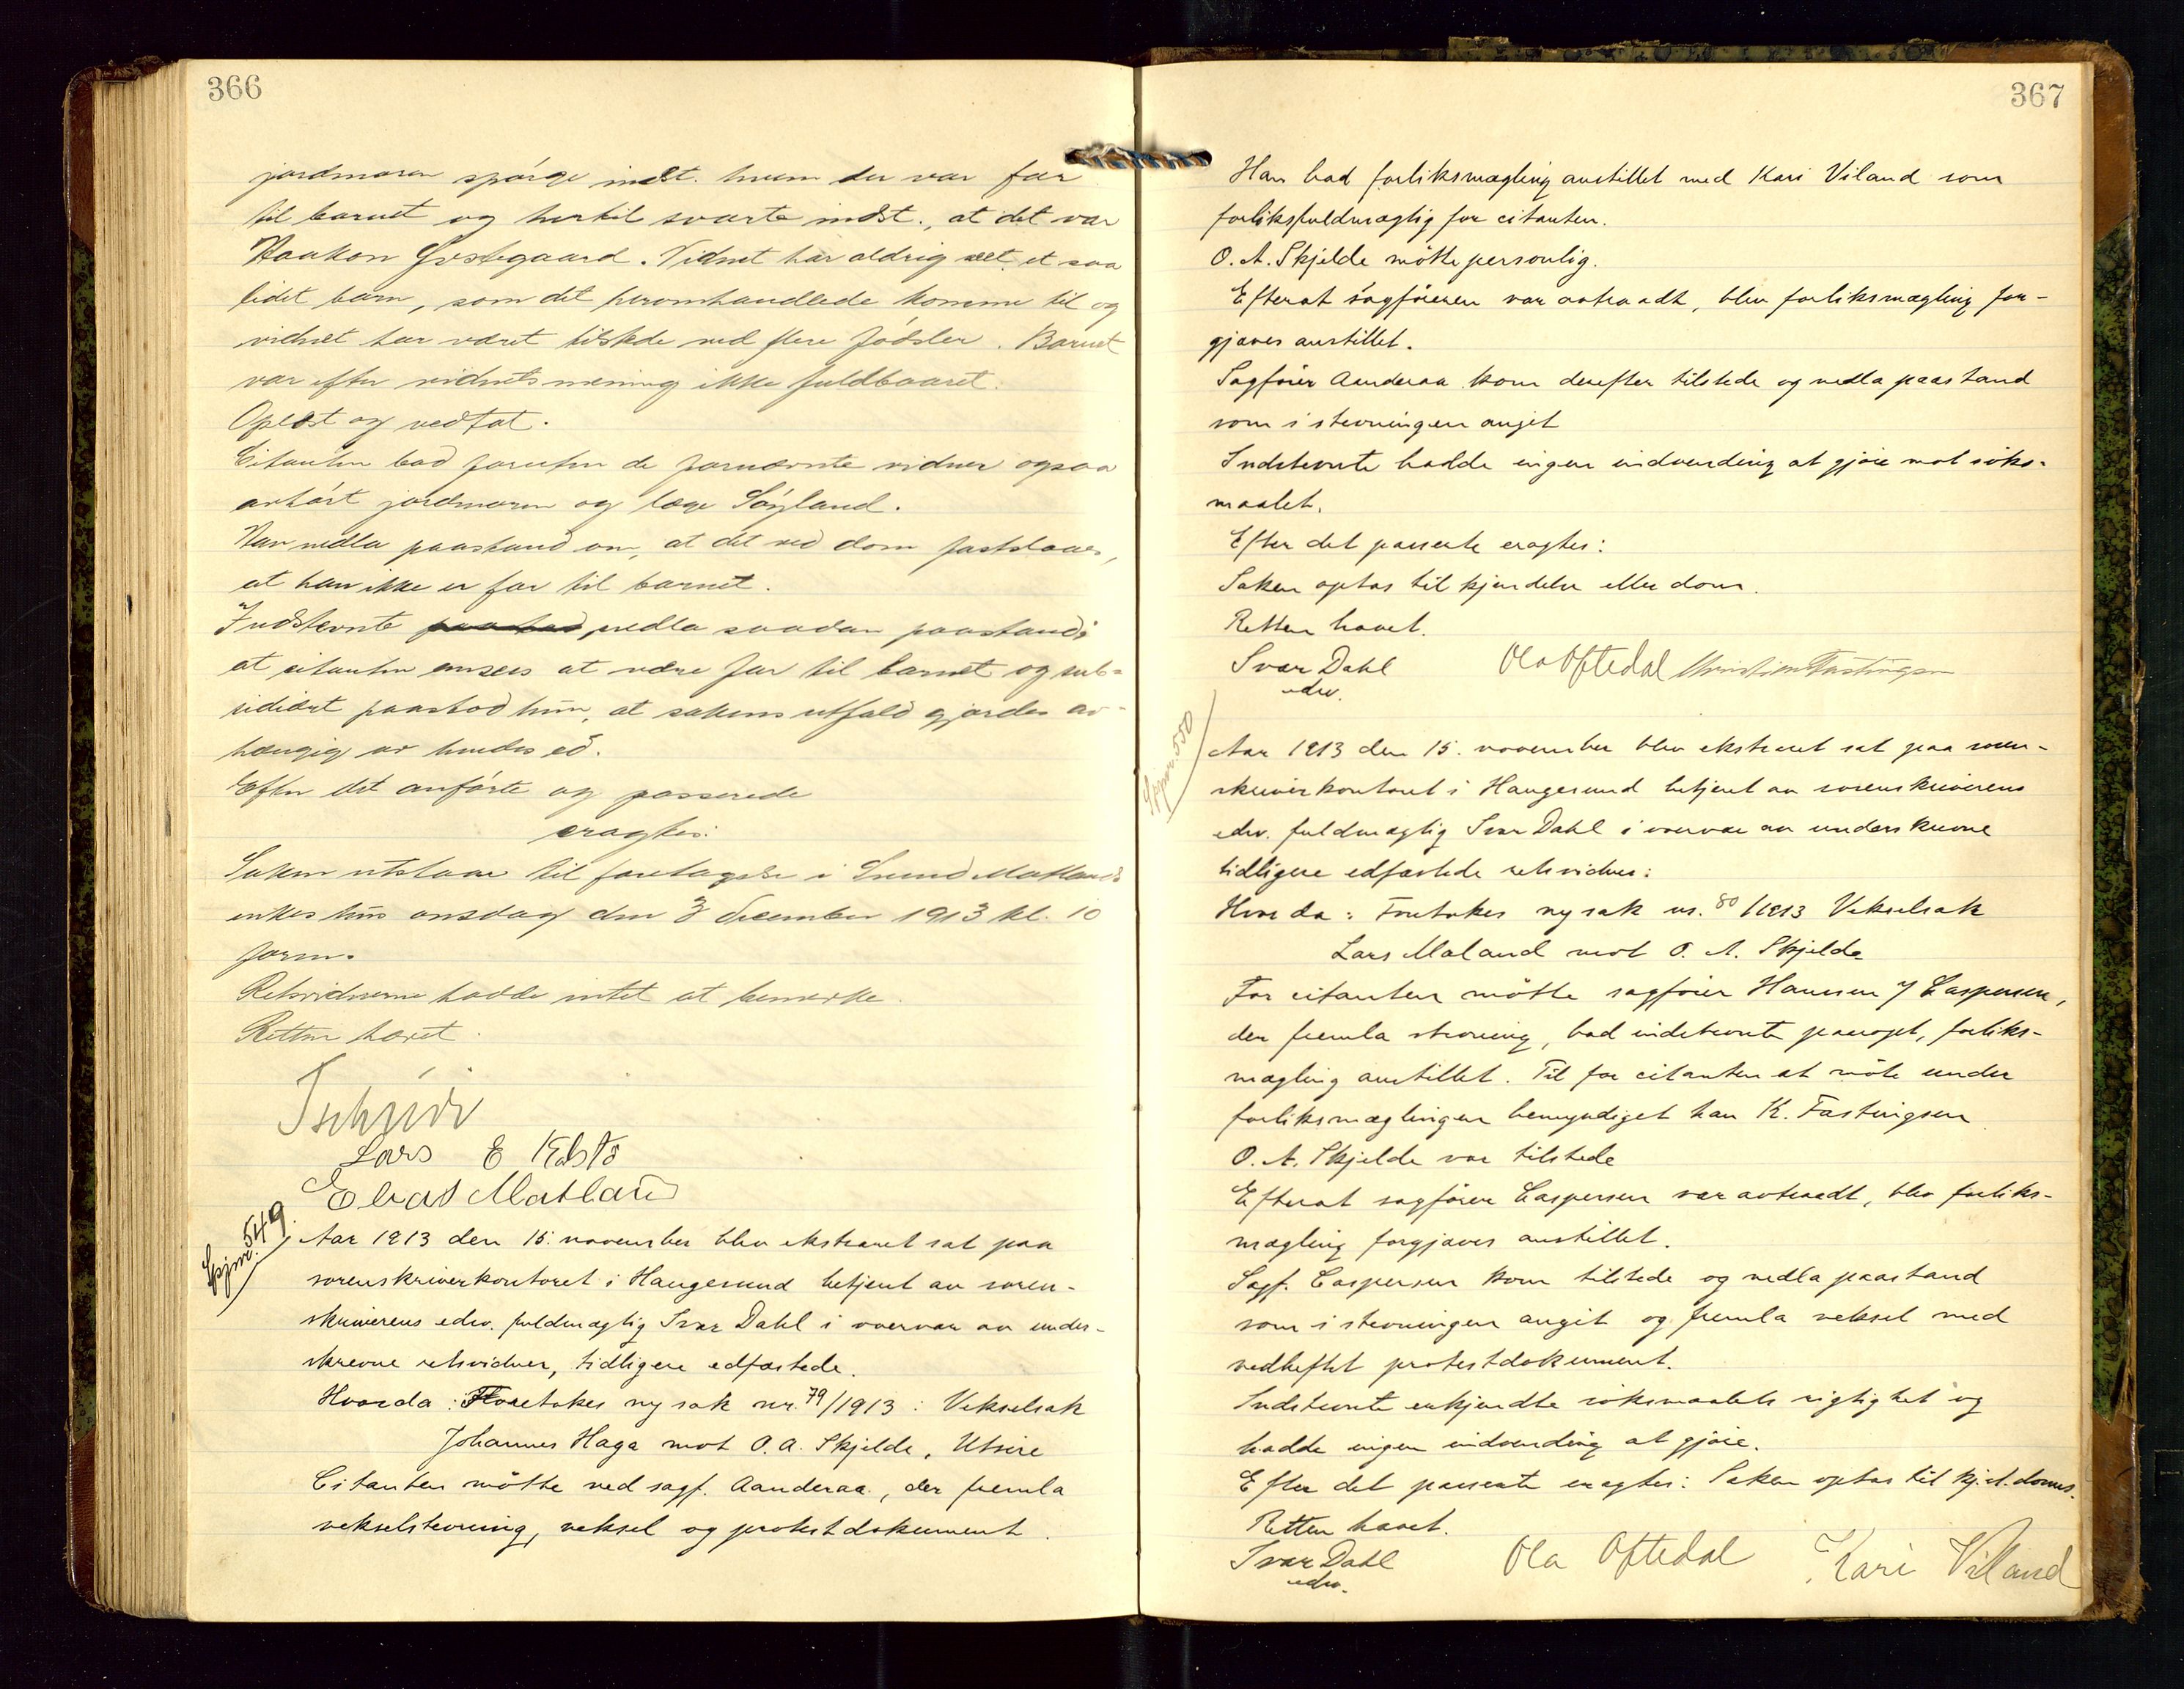 366
jordmoren spørge indst. hvem der var far
til barnet og hertil svarte indst., at det var
Haakon Østegaard. Vidnet har aldrig seet et saa
lidet barn, som det heromhandlede komme til og
vidnet har været tilstede ved flere fødsler. Barnet
var efter vidnets mening ikke fuldbaaret.
Oplæst og vedtat.
Citanten bad foruten de fornævnte vidner ogsaa
avhørt jordmoren og læge Søyland.
Han nedla paastand om, at det ved dom fastslaaes,
at han ikke er far til barnet.
Indstevnte nedla saadan paastand:
at citanten ansees at være far til barnet og sub-
sidiært paastod hun, at sakens utfald gjøres av-
hængig av hendes ed.
Efter det anførte og passerede
eragtes:
Saken utstaar til foretagelse i Svend Matlands
enkes hus onsdag den 3 december 1913 kl. 10
form.
Retsvidnerne hadde intet at bemerke.
Retten hævet.
Tschudi
Lars E
Elias Matland
Gjnr. 549.
Aar 1913 den 15. november blev ekstraret sat paa
sorenskriverkontoret i Haugesund betjent av soren-
skriverens edsv. fuldmægtig Ivar Dahl i overvær av under-
skrevne retsvidner, tidligere edfæstede.
Hvorda: Foretokes ny sak nr. 79/1913: Vekselsak
Johannes Haga mot O. A. Skjelde, Utsire
Citanten møtte ved sagf. Aanderaa, der fremla
vekselstevning, veksel og protestdokument.
367
Han bad forliksmægling anstillet med Kari Viland som
forliksfuldmægtig for citanten.
O. A. Skjelde møtte personlig.
Efterat sagføreren var avtraadt, blev forliksmægling for-
gjæves anstillet.
Sagfører Aanderaa kom derefter tilstede og nedla paastand
som i stevningen angit
Indstevnte hadde ingen indvending at gjøre mot søks-
maalet.
Efter det passerte eragtes:
Saken optas til kjendelse eller dom.
Retten hævet.
Ivar Dahl Ola Oftedal Christian Fastingsen
edsv.
Gjnr. 550
Aar 1913 den 15. november blev ekstraret sat paa soren-
skriverkontoret i Haugesund betjent av sorenskriverens
edsv. fuldmægtig Ivar Dahl i overvær av underskrevne
tidligere edfæstede retsvidner:
Hvorda: Foretokes ny sak nr. 80/1913 Vekselsak
Lars Maland mot O. A. Skjelde
For citanten møtte sagfører Hansen &amp; Caspersen,
der fremla stevning, bad indstevnte paaropt, forliks-
mægling anstillet. Til for citanten at møte under
forliksmæglingen bemyndiget han K. Fastingsen
O. A. Skjelde var tilstede
Efterat sagfører Caspersen var avtraadt, blev forliks-
mægling forgjæves anstillet.
Sagf. Caspersen kom tilstede og nedla paastand
som i stevningen angit og fremla veksel med
vedheftet protestdokument.
Indstevnte erkjendte søksmaalets rigtighet og
hadde ingen indvending at gjøre.
Efter det passerte eragtes: Saken optas til kj. el. doms.
Retten hævet.
Ivar Dahl Ola Oftedal Kari Viland
edsv.